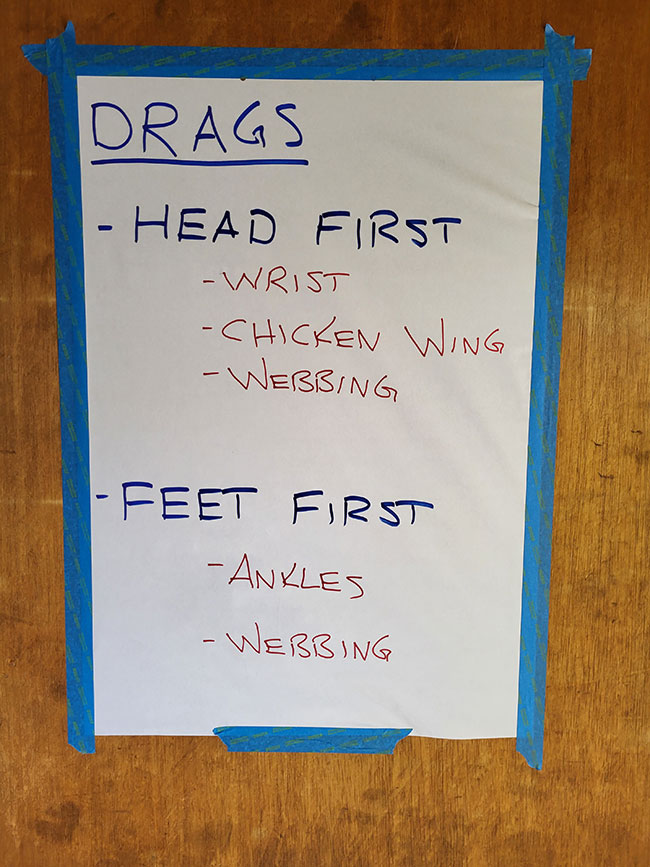 DRAGS
- HEAD FIRST
- WRIST
- CHICKEN WING
- WEBBING
- FEET FIRST
- ANKLES
- WEBBING